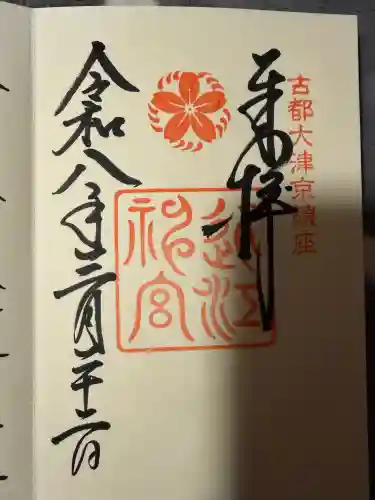 古都大津京鎮座
奉拝
近江神宮
令和八年二月二十二日